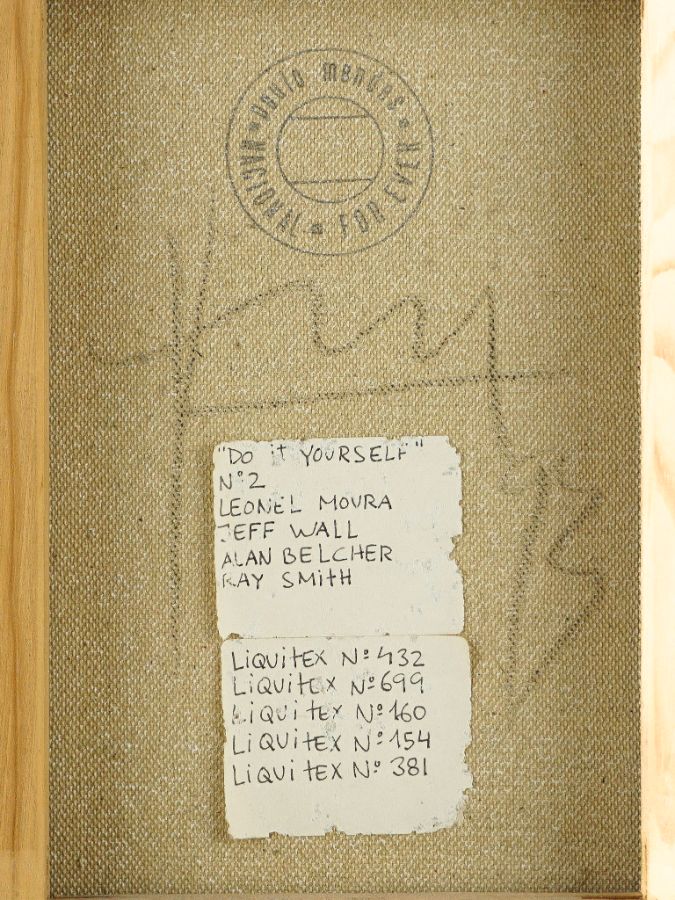 paulo mendes
NACIONAL
FOR EVER
"DO it YOURSELF"
Nº2
LEONEL MOURA
JEFF WALL
ALAN BELCHER
RAY SMitH
LiQUitEX Nº 432
LiQUitEX Nº 699
LiQUitEX Nº 160
LiQUitEX Nº 154
LiQUitEX Nº 381